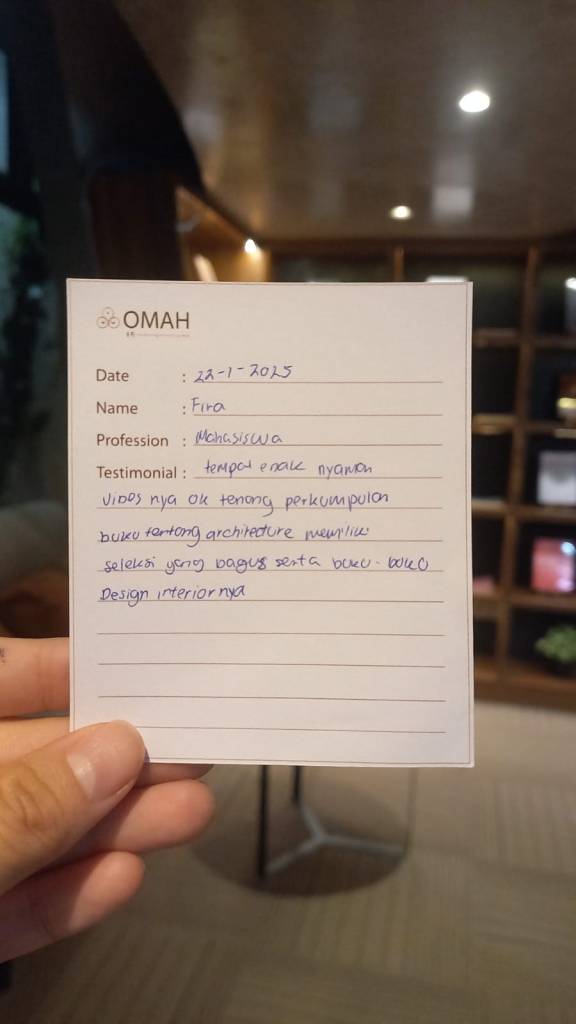 OMAH
Date : 22-1-2025
Name : Fira
Profession : Mahasiswa
Testimonial : tempat enak nyaman
vibes nya ok tenang perkumpulan
buku tentang architecture memiliki
seleksi yang bagus serta buku-buku
Design interior nya